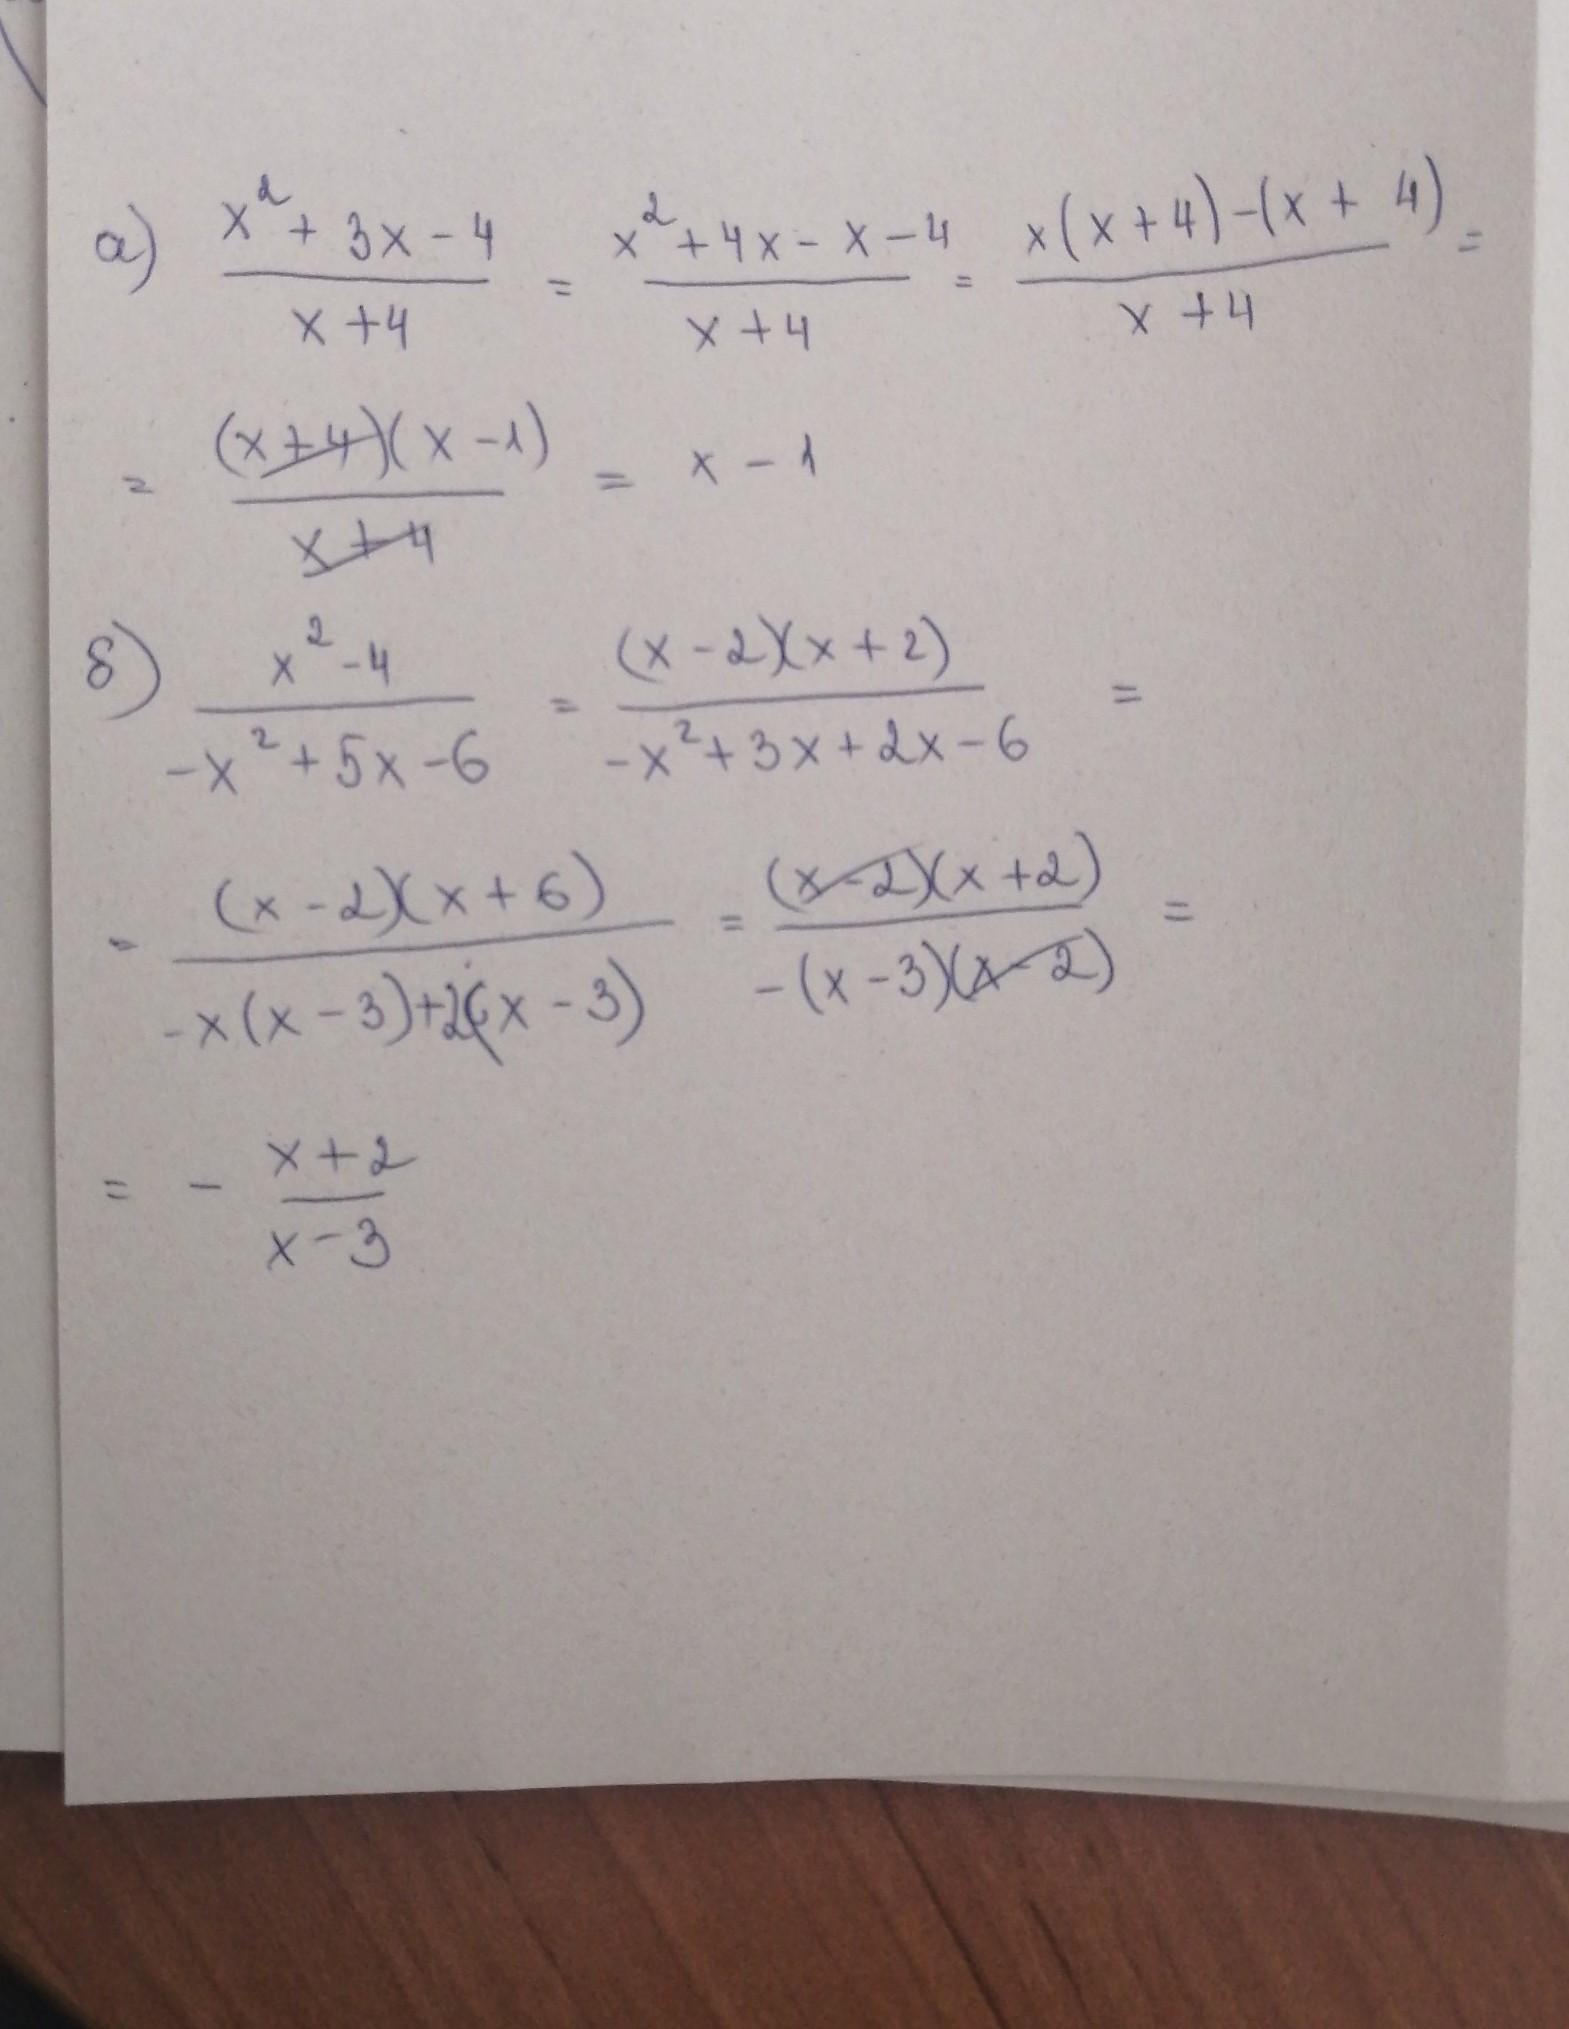 а) (x² + 3x - 4)/(x + 4) = (x² + 4x - x - 4)/(x + 4) = (x(x + 4) - (x + 4))/(x + 4) =
= ((x + 4)(x - 1))/(x + 4) = x - 1
б) (x² - 4)/(-x² + 5x - 6) = ((x - 2)(x + 2))/(-x² + 3x + 2x - 6) =
= ((x - 2)(x + 6))/(-x(x - 3) + 2(x - 3)) = ((x - 2)(x + 2))/(-(x - 3)(x - 2)) =
= - (x + 2)/(x - 3)